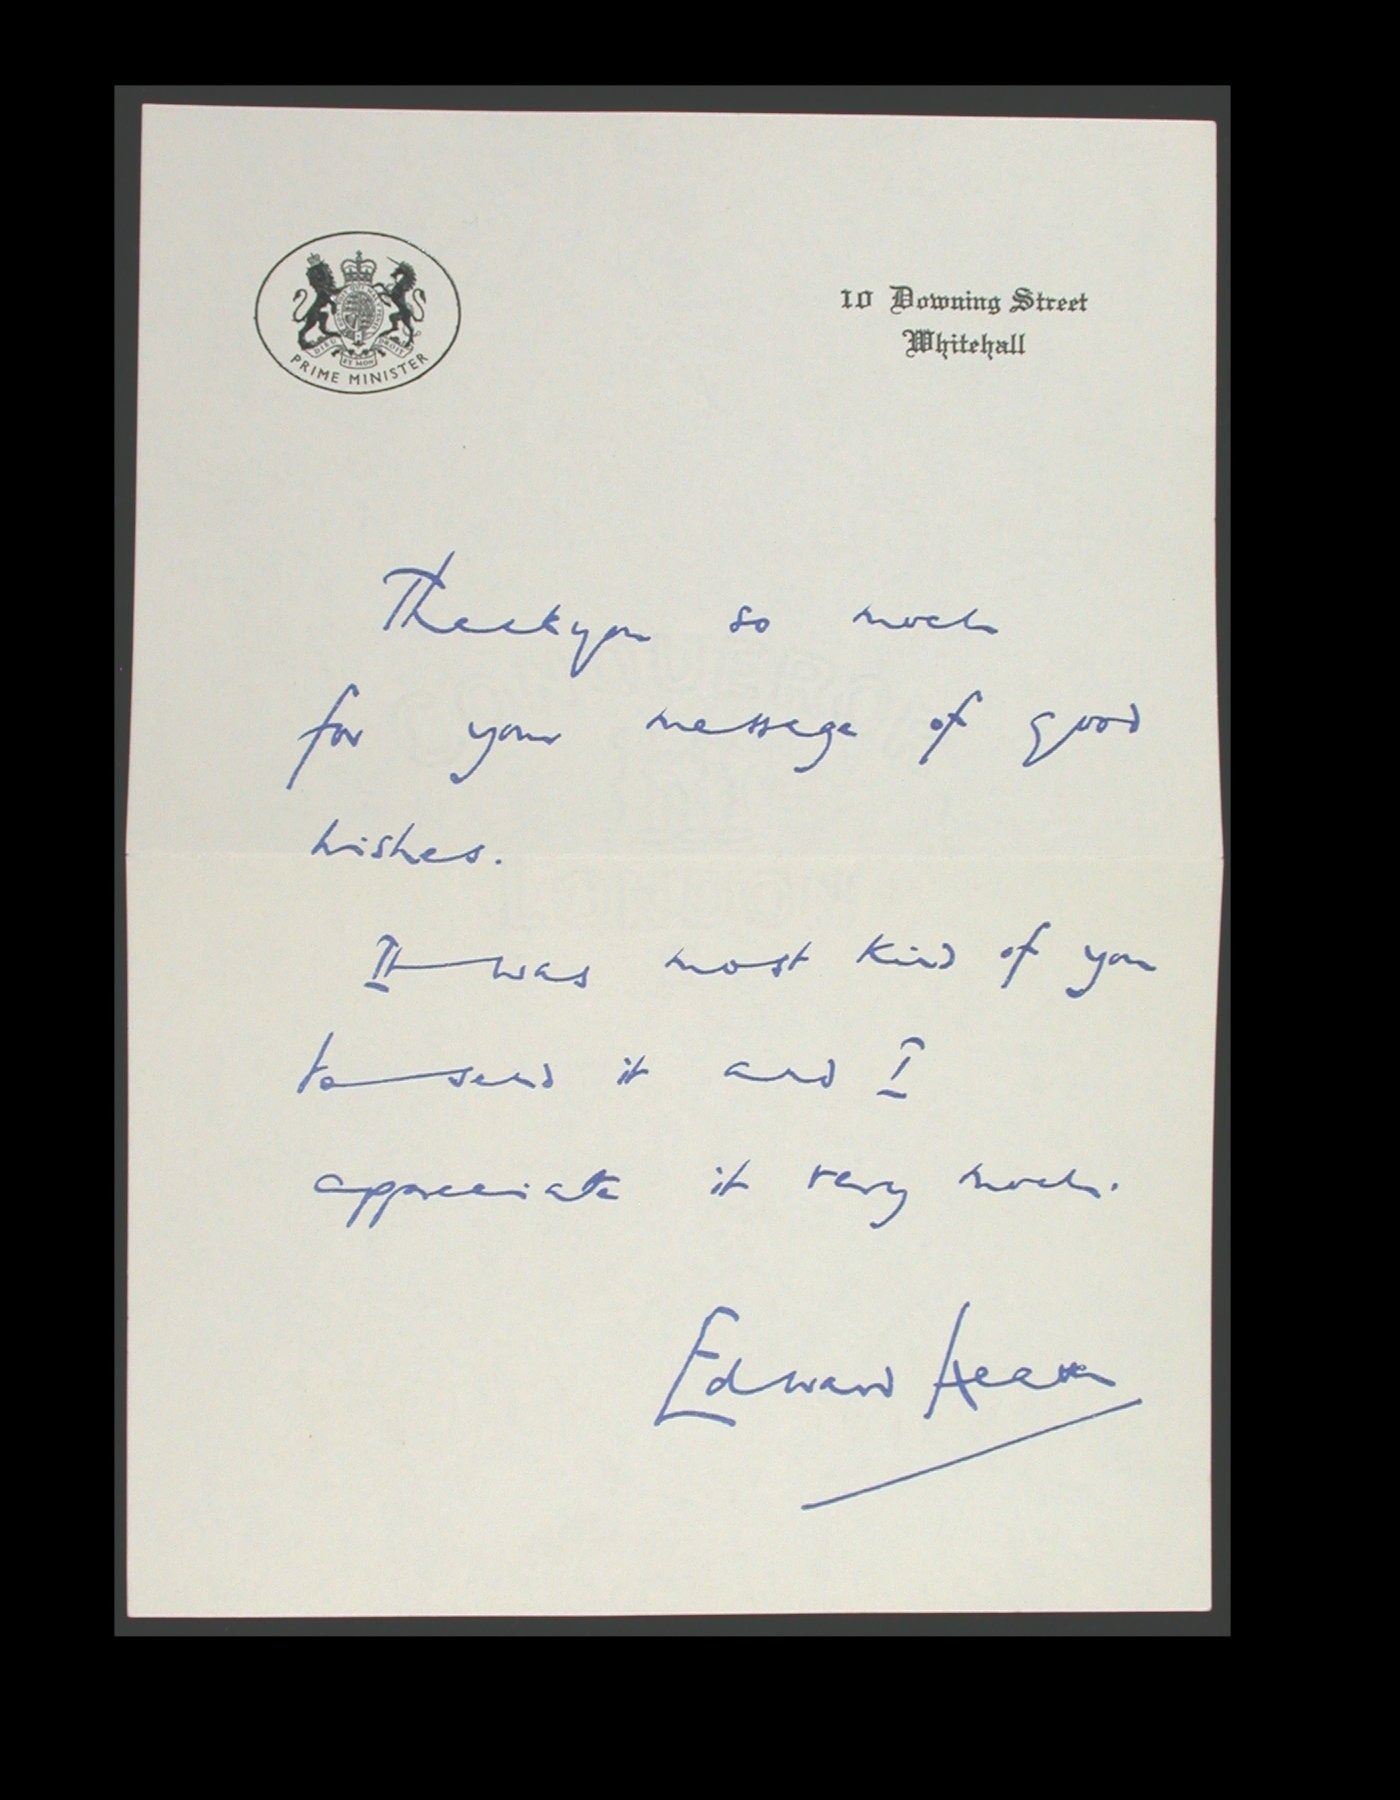 DIEU ET MON DROIT
PRIME MINISTER
10 Downing Street
Whitehall
Thank you so much
for your message of good
wishes.
It was most kind of you
to send it and I
appreciate it very much.
Edward Heath